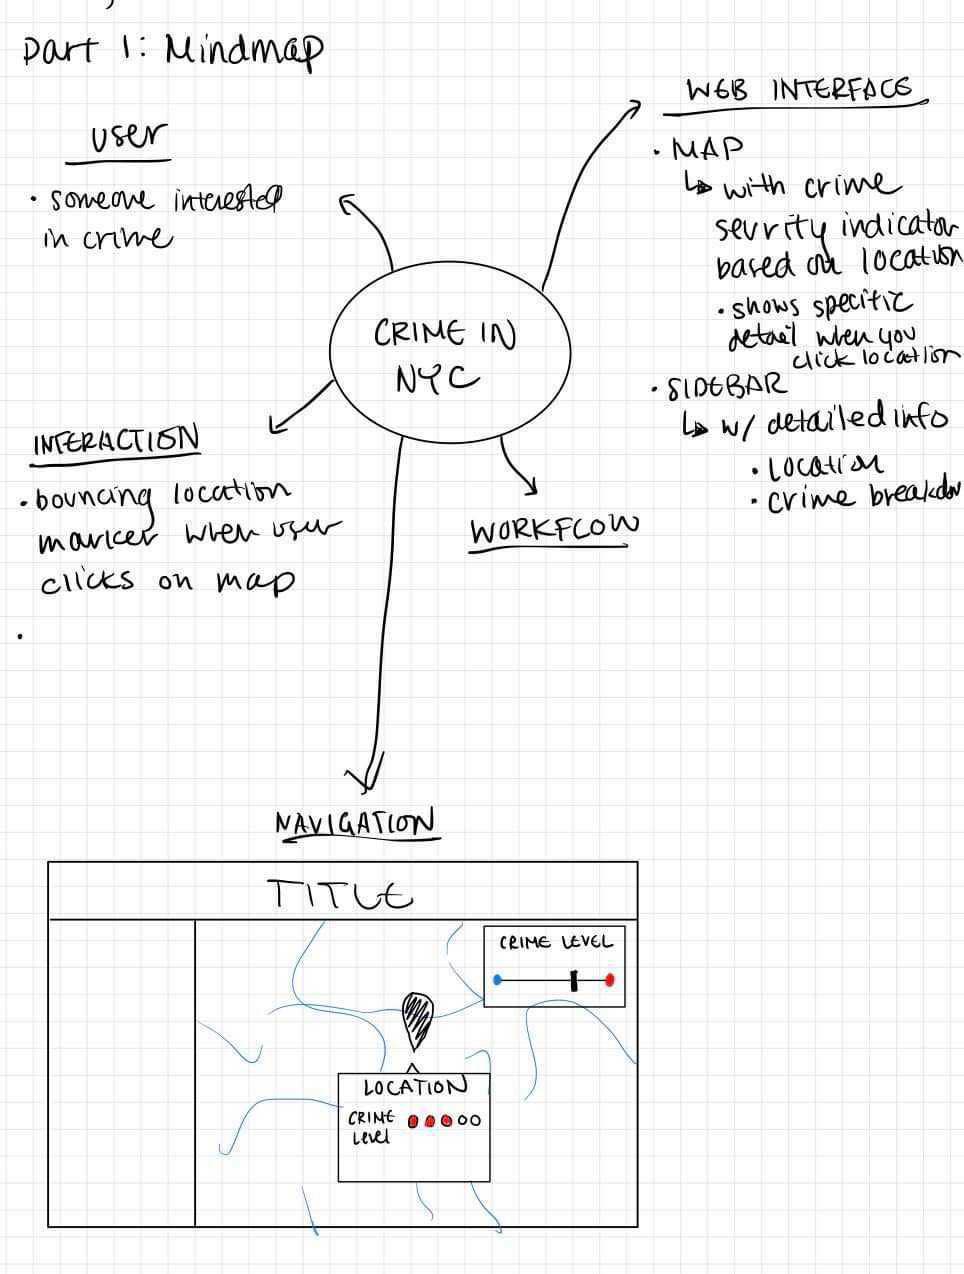 Part 1: Mindmap
user
• someone interested
in crime
WEB INTERFACE
• MAP
↳ with crime
sevrity indicator
based on location
• shows specific
detail when you
click location
• SIDEBAR
↳ w/ detailed info
• Location
• crime breakdow
CRIME IN
NYC
INTERACTION
• bouncing location
marker when user
clicks on map
•
WORKFLOW
NAVIGATION
TITLE
CRIME LEVEL
LOCATION
CRIME
Level